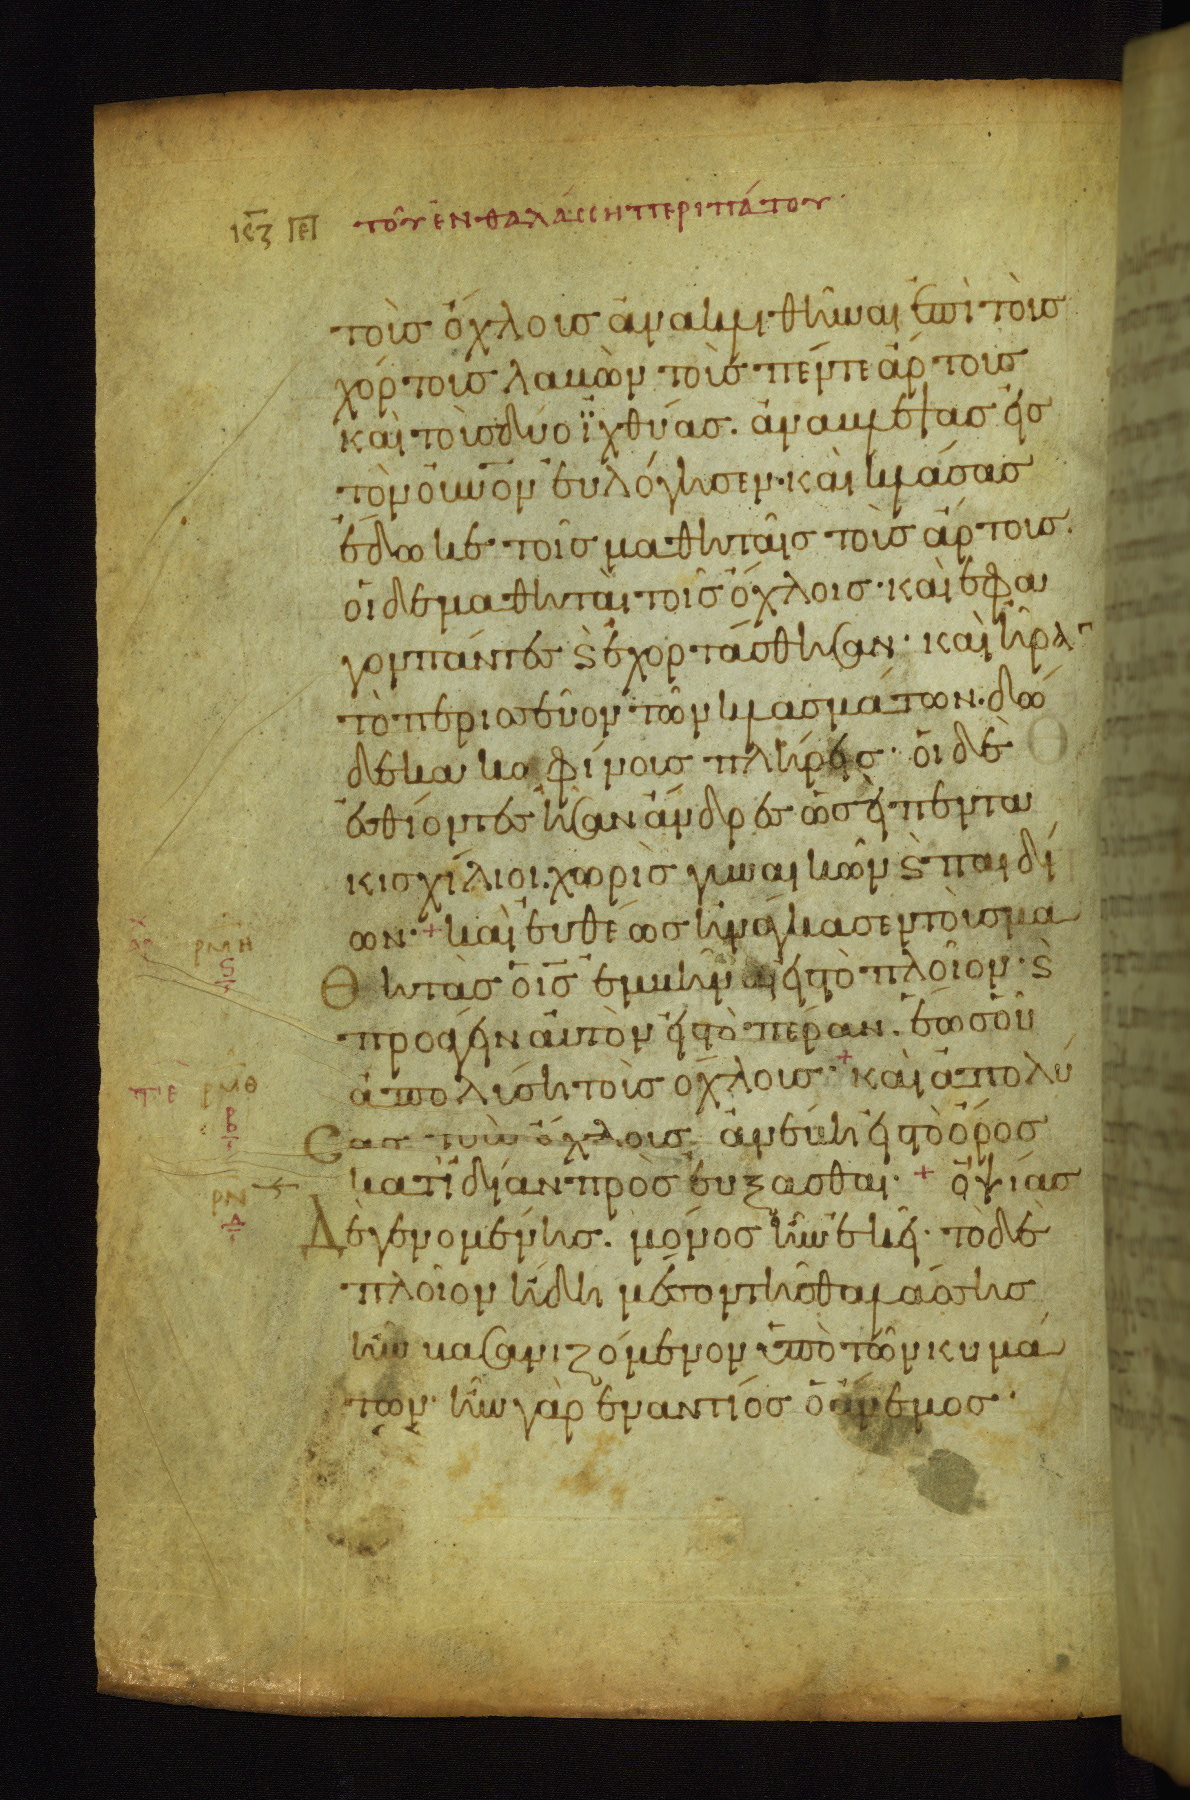 κϛ̅ πε̅ τοῦ ἐν θαλάσση περιπάτου
τοὺς ὄχλους ἀνακλιθῆναι ἐπὶ τοὺς
χόρτους λαβὼν τοὺς πέντε ἄρτους
καὶ τοὺς δύο ἰχθύας. ἀναβλέψας εἰς
τὸν οὐ̅ν̅ο̅ν εὐλόγησεν· καὶ κλάσας
ἔδωκε τοῖς μαθηταῖς τοὺς ἄρτους.
οἱ δὲ μαθηταὶ τοῖς ὄχλοις· καὶ ἔφα
γον πάντες ϗ ἐχορτάσθησαν· καὶ ἦραν
τὸ περισσεῦον τῶν κλασμάτων. δώ
δεκα κοφίνους πλήρεις· οἱ δὲ
ἐσθίοντες ἦσαν ἄνδρες ὡσεὶ πεντα
κισχίλιοι. χωρὶς γυναικῶν ϗ παιδί
ων· + καὶ εὐθέως ἠνάγκασεν τοὺς μα
ρμη
ϛ
θητὰς ὁ ι̅ς̅ ἐμβῆναι εἰς τὸ πλοῖον· ϗ
προάγειν αὐτὸν εἰς τὸ πέραν. ἕως οὗ
ἀπολύση τοὺς ὄχλους· + καὶ ἀπολύ
ρμθ
β
σας τοὺς ὄχλους ἀνέβη εἰς τὸ ὄρος
κατ ἰδίαν προσεύξασθαι· + ὀψίας
ρν
δ
δὲ γενομένης. μόνος ἦν ἐκεῖ· τὸ δὲ
πλοῖον ἤδη μέσον τῆς θαλάσσης
ἦν βασανιζόμενον ὑπὸ τῶν κυμά
των· ἦν γὰρ ἐναντίος ὁ ἄνεμος·